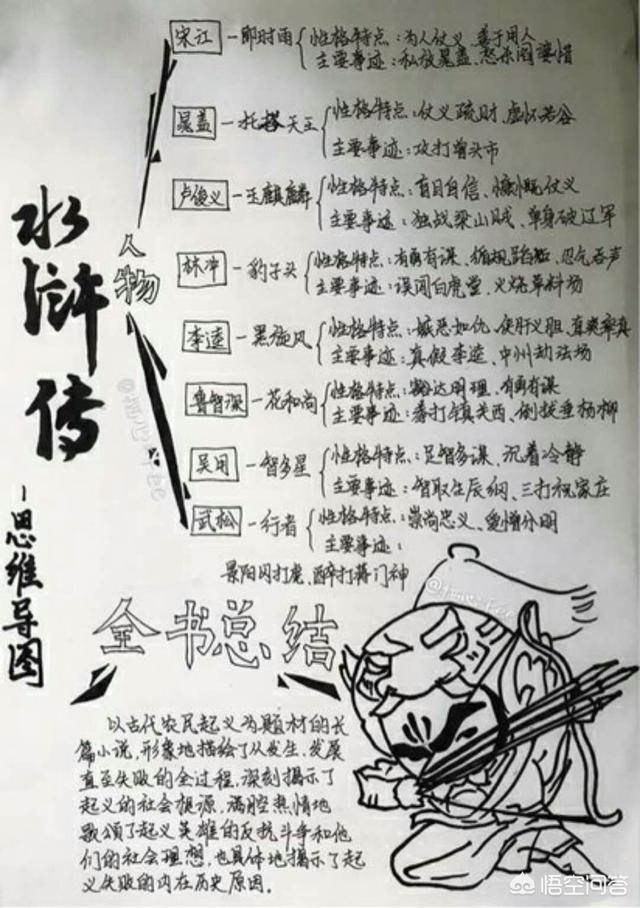 水浒传
-思维导图
人物
宋江-即时雨
性格特点:为人仗义、善于用人
主要事迹:私放晁盖,怒杀阎婆惜
晁盖-托塔天王
性格特点:仗义疏财,虚怀若谷
主要事迹:攻打曾头市
卢俊义-玉麒麟
性格特点:盲目自信、慷慨仗义
主要事迹:独战梁山贼、单身破辽军
林冲-豹子头
性格特点:有勇有谋、循规蹈矩、忍气吞声
主要事迹:误闯白虎堂、火烧草料场
李逵-黑旋风
性格特点:嫉恶如仇、侠肝义胆、直爽率真
主要事迹:真假李逵、中州劫法场
鲁智深-花和尚
性格特点:豁达明理、有勇有谋
主要事迹:拳打镇关西、倒拔垂杨柳
吴用-智多星
性格特点:足智多谋、沉着冷静
主要事迹:智取生辰纲、三打祝家庄
武松-行者
性格特点:崇尚忠义、爱憎分明
主要事迹:
景阳冈打虎、醉打蒋门神
全书总结
以古代农民起义为题材的长
篇小说,形象地描绘了从发生、发展
直至失败的全过程,深刻揭示了
起义的社会根源,满腔热情地
歌颂了起义英雄的反抗斗争和他
们的社会理想,也具体地揭示了起
义失败的内在历史原因。
悟空问答